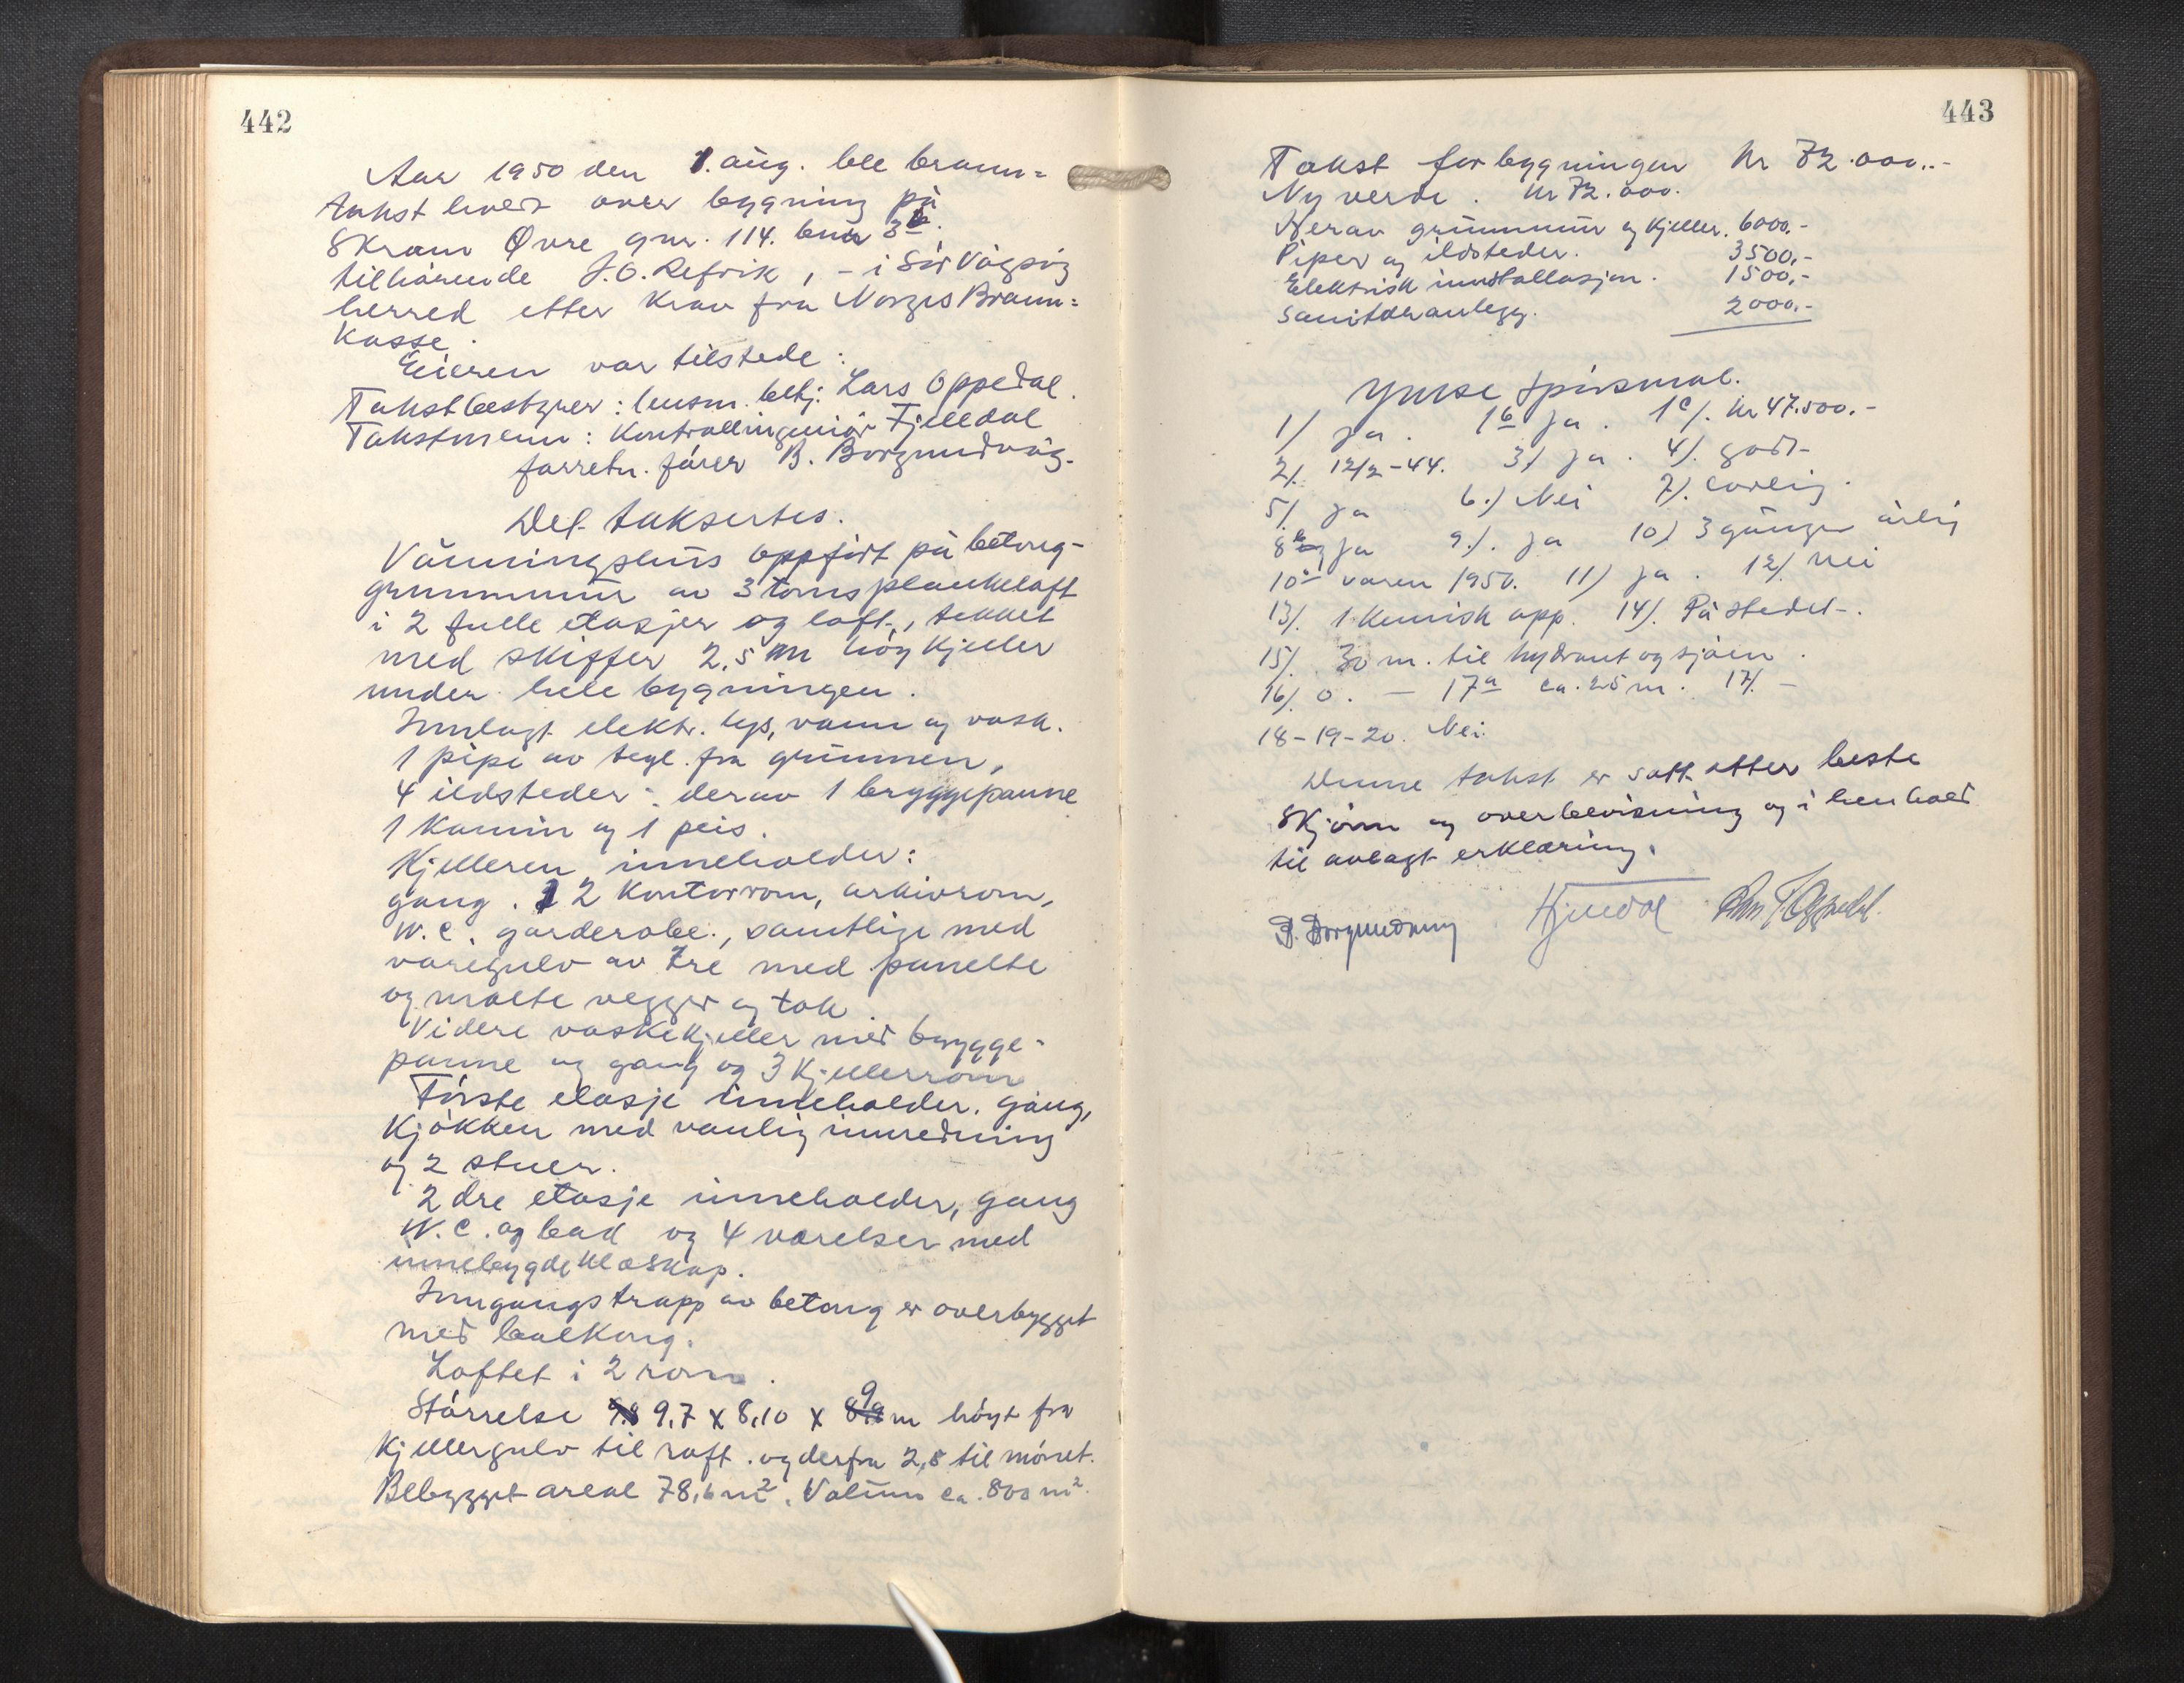 442
Aar 1950 den 1. aug. ble brann=
takst holdt over bygning på
Skram Øvre gnr. 114. bnr 3b.
tilhørende J. O. Refvik, - i Sør Vågsøy
herred etter krav fra Norges Brann=
kasse.
Eieren var tilstede:
Takstbestyrer: lensm. betj. Lars Oppedal.
Takstmenn: Kontrollingeniør Fjelldal
forretn. fører B. Borgundvåg.
Det taksertes.
Våningshus oppført på betong-
grunnmur av 3 toms plankelaft
i 2 fulle etasjer og loft, tekket
med skiffer 2,5 m høy kjeller
under hele bygningen.
Innlagt elektr. lys, vann og vask.
1 pipe av tegl. fra grunnen,
4 ildsteder: derav 1 bryggepanne
1 Kamin og 1 peis.
Kjelleren inneholder:
gang. 2 Kontorrom, arkivrom,
W.C. garderobe., samtlige med
varegulv av tre med panelte
og malte vegger og tak.
Videre vaskekjeller med brygge-
panne og gang og 3 Kjellerrom
Første etasje inneholder. gang,
Kjøkken med vanlig innredning
og 2 stuer.
2 dre etasje inneholder, gang
W.C. og bad og 4 værelser med
innebygde klæskap.
Inngangstrapp av betong er overbygget
med balkong.
Loftet i 2 rom.
Størrelse 9,7 x 8,10 x 9 m høyt fra
Kjellergulv til raft. og derfra 2,8 til mønet.
Bebygget areal 78,6 m². Volum ca. 800 m².
443
Takst for bygningen kr 72.000.-
Ny verdi. kr 72.000.
Herav grunnmur og Kjeller. 6000.-
Piper og ildsteder. 3500,-
Elektrisk innstallasjon. 1500,-
Sanitæranlegg. 2000.-
Ymse spørsmal.
1/ ja. 1b ja. 1c/. kr 47.500.-
2/. 12/2-44. 3/ ja. 4/. godt-
5/. ja 6./ Nei 7/. bolig.
8 ja 9./. ja 10) 3 gånger årlig
10a våren 1950. 11) ja. 12/. nei
13/. 1 kemisk app. 14/. På stedet-.
15/. 30 m. til hydrant og sjøen.
16/. 0. - 17a ca. 25 m. 17/. -
18-19-20. Nei.
Denne takst er satt etter beste
Skjønn og overbevisning og i henhold
til avlagt erklæring.
B. Borgundvåg Fjelldal Lars Oppedal.